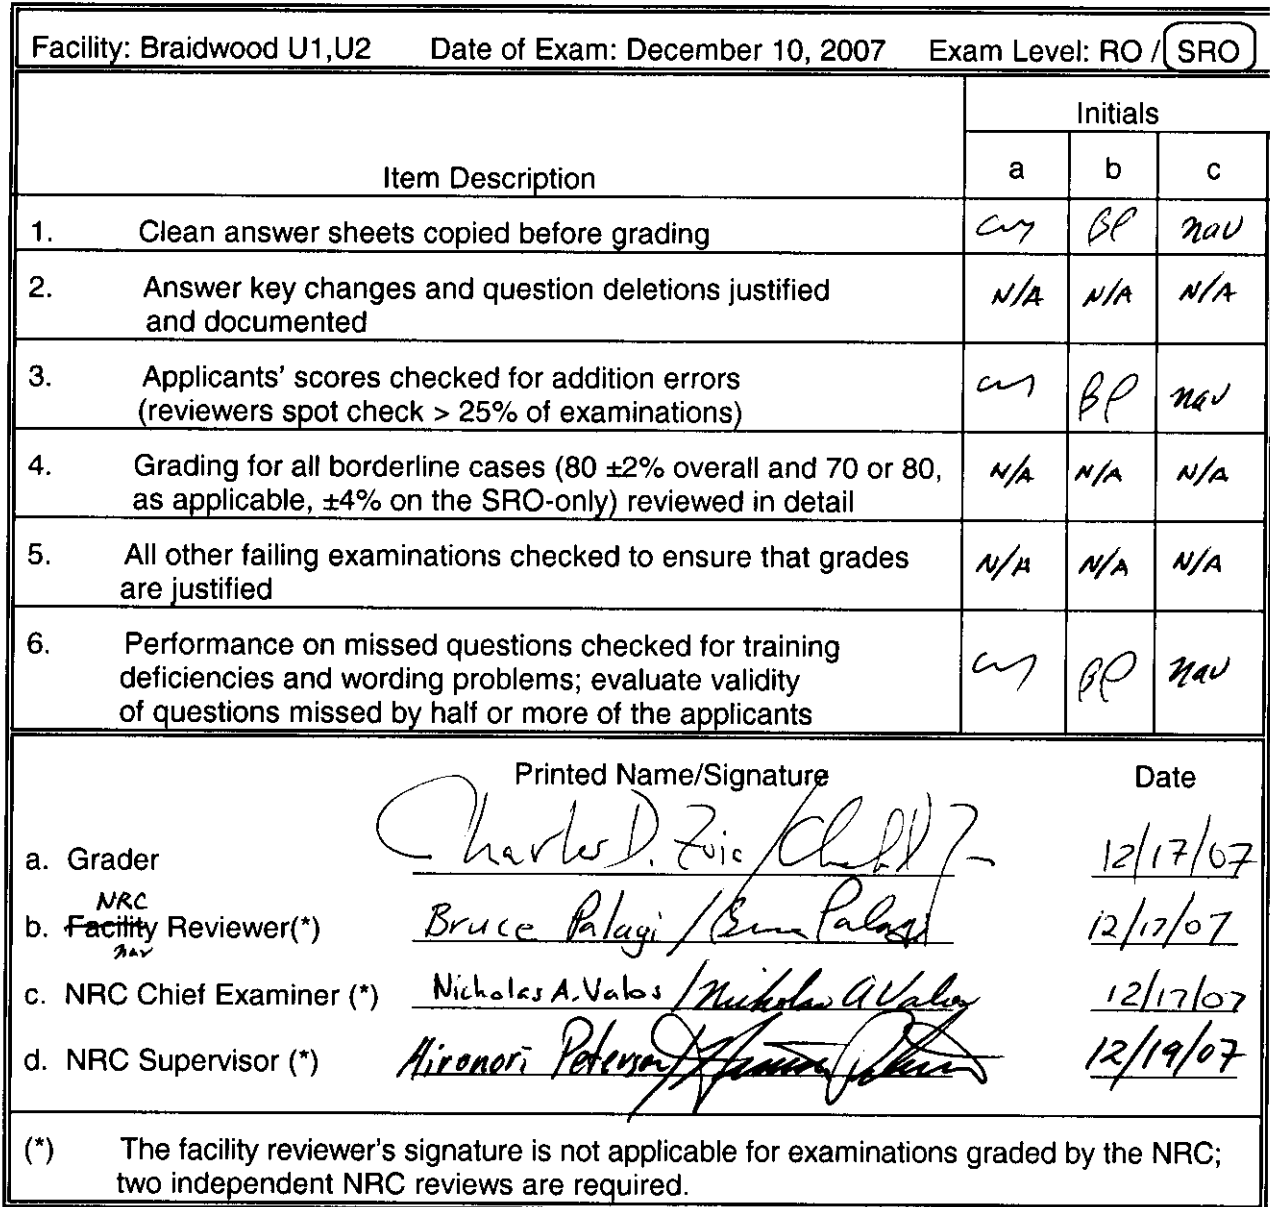 Facility: Braidwood U1,U2 Date of Exam: December 10, 2007 Exam Level: RO / SRO
Initials
Item Description a b c
1. Clean answer sheets copied before grading BP nav
2. Answer key changes and question deletions justified N/A N/A N/A
and documented
3. Applicants' scores checked for addition errors BP nav
(reviewers spot check > 25% of examinations)
4. Grading for all borderline cases (80 ±2% overall and 70 or 80, N/A N/A N/A
as applicable, ±4% on the SRO-only) reviewed in detail
5. All other failing examinations checked to ensure that grades N/A N/A N/A
are justified
6. Performance on missed questions checked for training BP nav
deficiencies and wording problems; evaluate validity
of questions missed by half or more of the applicants
Printed Name/Signature Date
a. Grader Charles D. / 12/17/07
NRC
b. Facility Reviewer(*) Bruce Palagi / Palagi 12/17/07
nav
c. NRC Chief Examiner (*) Nicholas A. Valos / Nicholas A Valos 12/17/07
d. NRC Supervisor (*) Hironori Peterson / 12/19/07
(*) The facility reviewer's signature is not applicable for examinations graded by the NRC;
two independent NRC reviews are required.